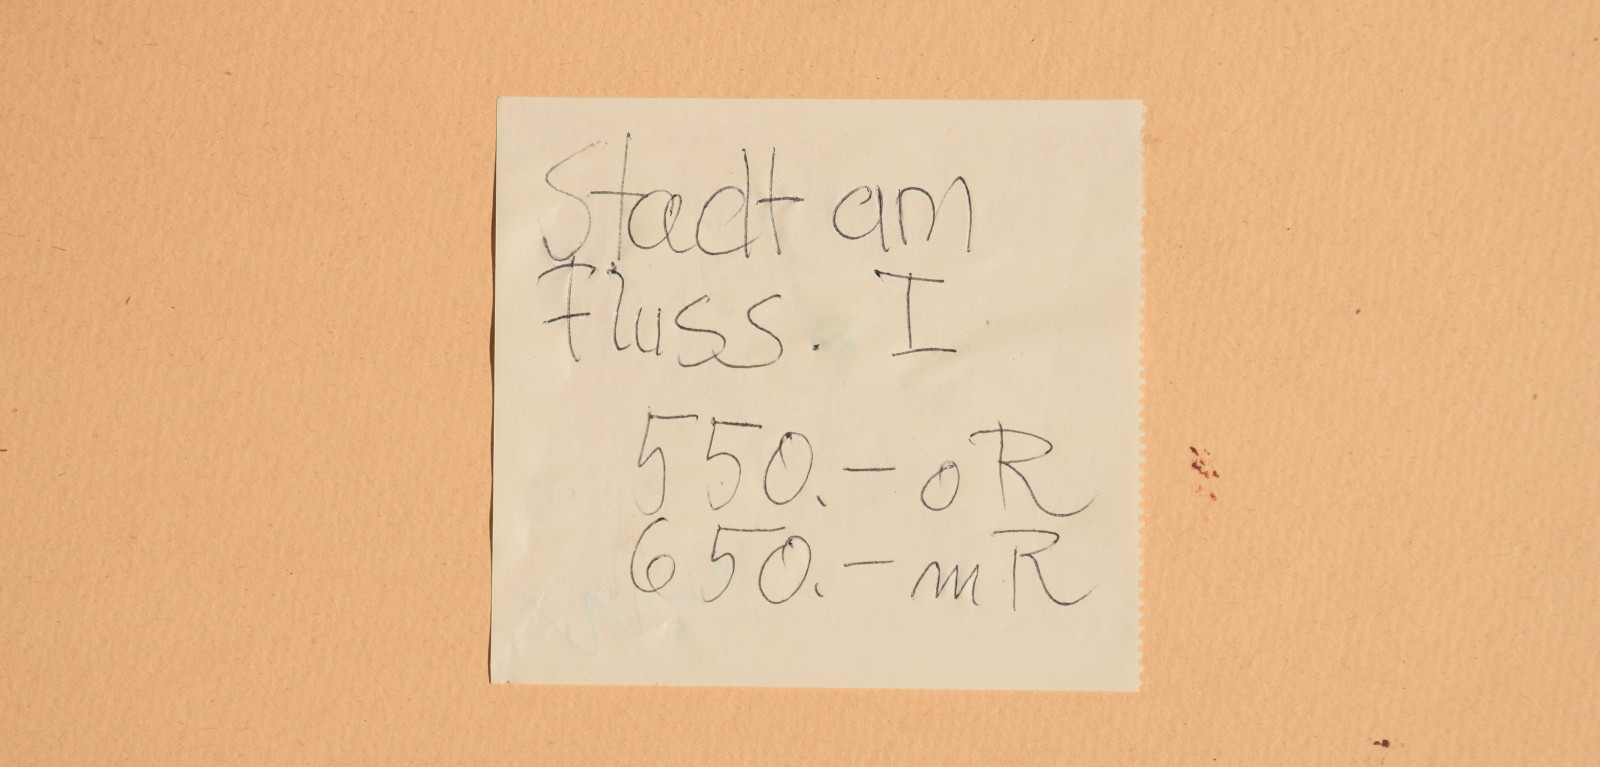 Stadt am
Fluss. I
550.- oR
650.- mR